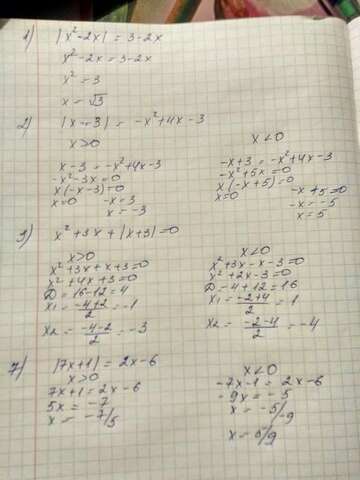 1) |x²-2x| = 3-2x
x²-2x = 3-2x
x² = 3
x = √3
2) |x-3| = -x²+4x-3
x>0
x-3 = -x²+4x-3
-x²-3x=0
x(-x-3)=0
x=0 -x=3
x=-3
x<0
-x+3 = -x²+4x-3
-x²+5x=0
x(-x+5)=0
x=0 -x+5=0
-x=-5
x=5
3) x²+3x+|x+3|=0
x>0
x²+3x+x+3=0
x²+4x+3=0
D=16-12=4
x1=(-4+2)/2=-1
x2=(-4-2)/2=-3
x<0
x²+3x-x-3=0
x²+2x-3=0
D=4+12=16
x1=(-2+4)/2=1
x2=(-2-4)/2=-4
7) |7x+1| = 2x-6
x>0
7x+1=2x-6
5x=-7
x=-7/5
x<0
-7x-1=2x-6
-9x=-5
x=-5/-9
x=5/9